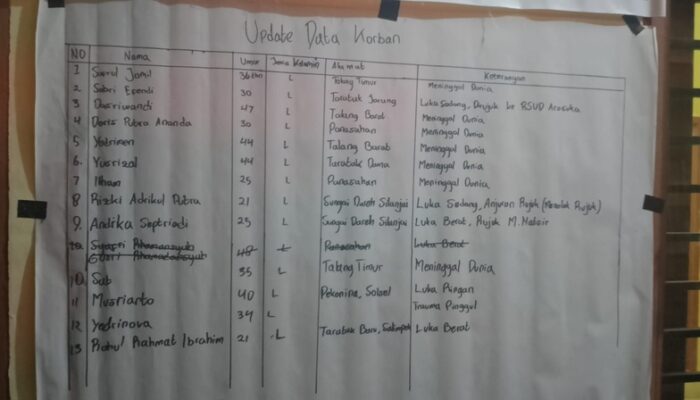 Update Data Korban
NO Nama Umur Jenis Kelamin Alamat Keterangan
1 Sasrul Jamil 36 thn L Talang Timur Meninggal Dunia
2 Sabri Ependi 30 L Taratak Jarang Luka Sedang, Dirujuk ke RSUD Arosuka
3 Dasriwandi 47 L Talang Barat Meninggal Dunia
4 Doris Putra Ananda 30 L Panasahan Meninggal Dunia
5 Yatrimen 44 L Talang Barat Meninggal Dunia
6. Yusrizal 44 L Taratak Dama Meninggal Dunia
7 Ilham 25 L Panasahan Meninggal Dunia
8 Rizki Adrikul Putra 21 L Sungai Dareh Silanjai Luka Sedang, Anjuran Rujuk (Menolak Rujuk)
9. Andika Septriadi 25 L Sungai Dareh Silanjai Luka Berat, Rujuk M. Natsir
48 L Panasahan Luka Berat
10 Sab 35 L Talang Timur Meninggal Dunia
11 Musriarto 40 L Pekonina, Solsel Luka Ringan
12 Yedrinova 34 L Trauma Pinggul
13 Rahul Rahmat Ibrahim 21 L Taratak Baru, Luka Berat